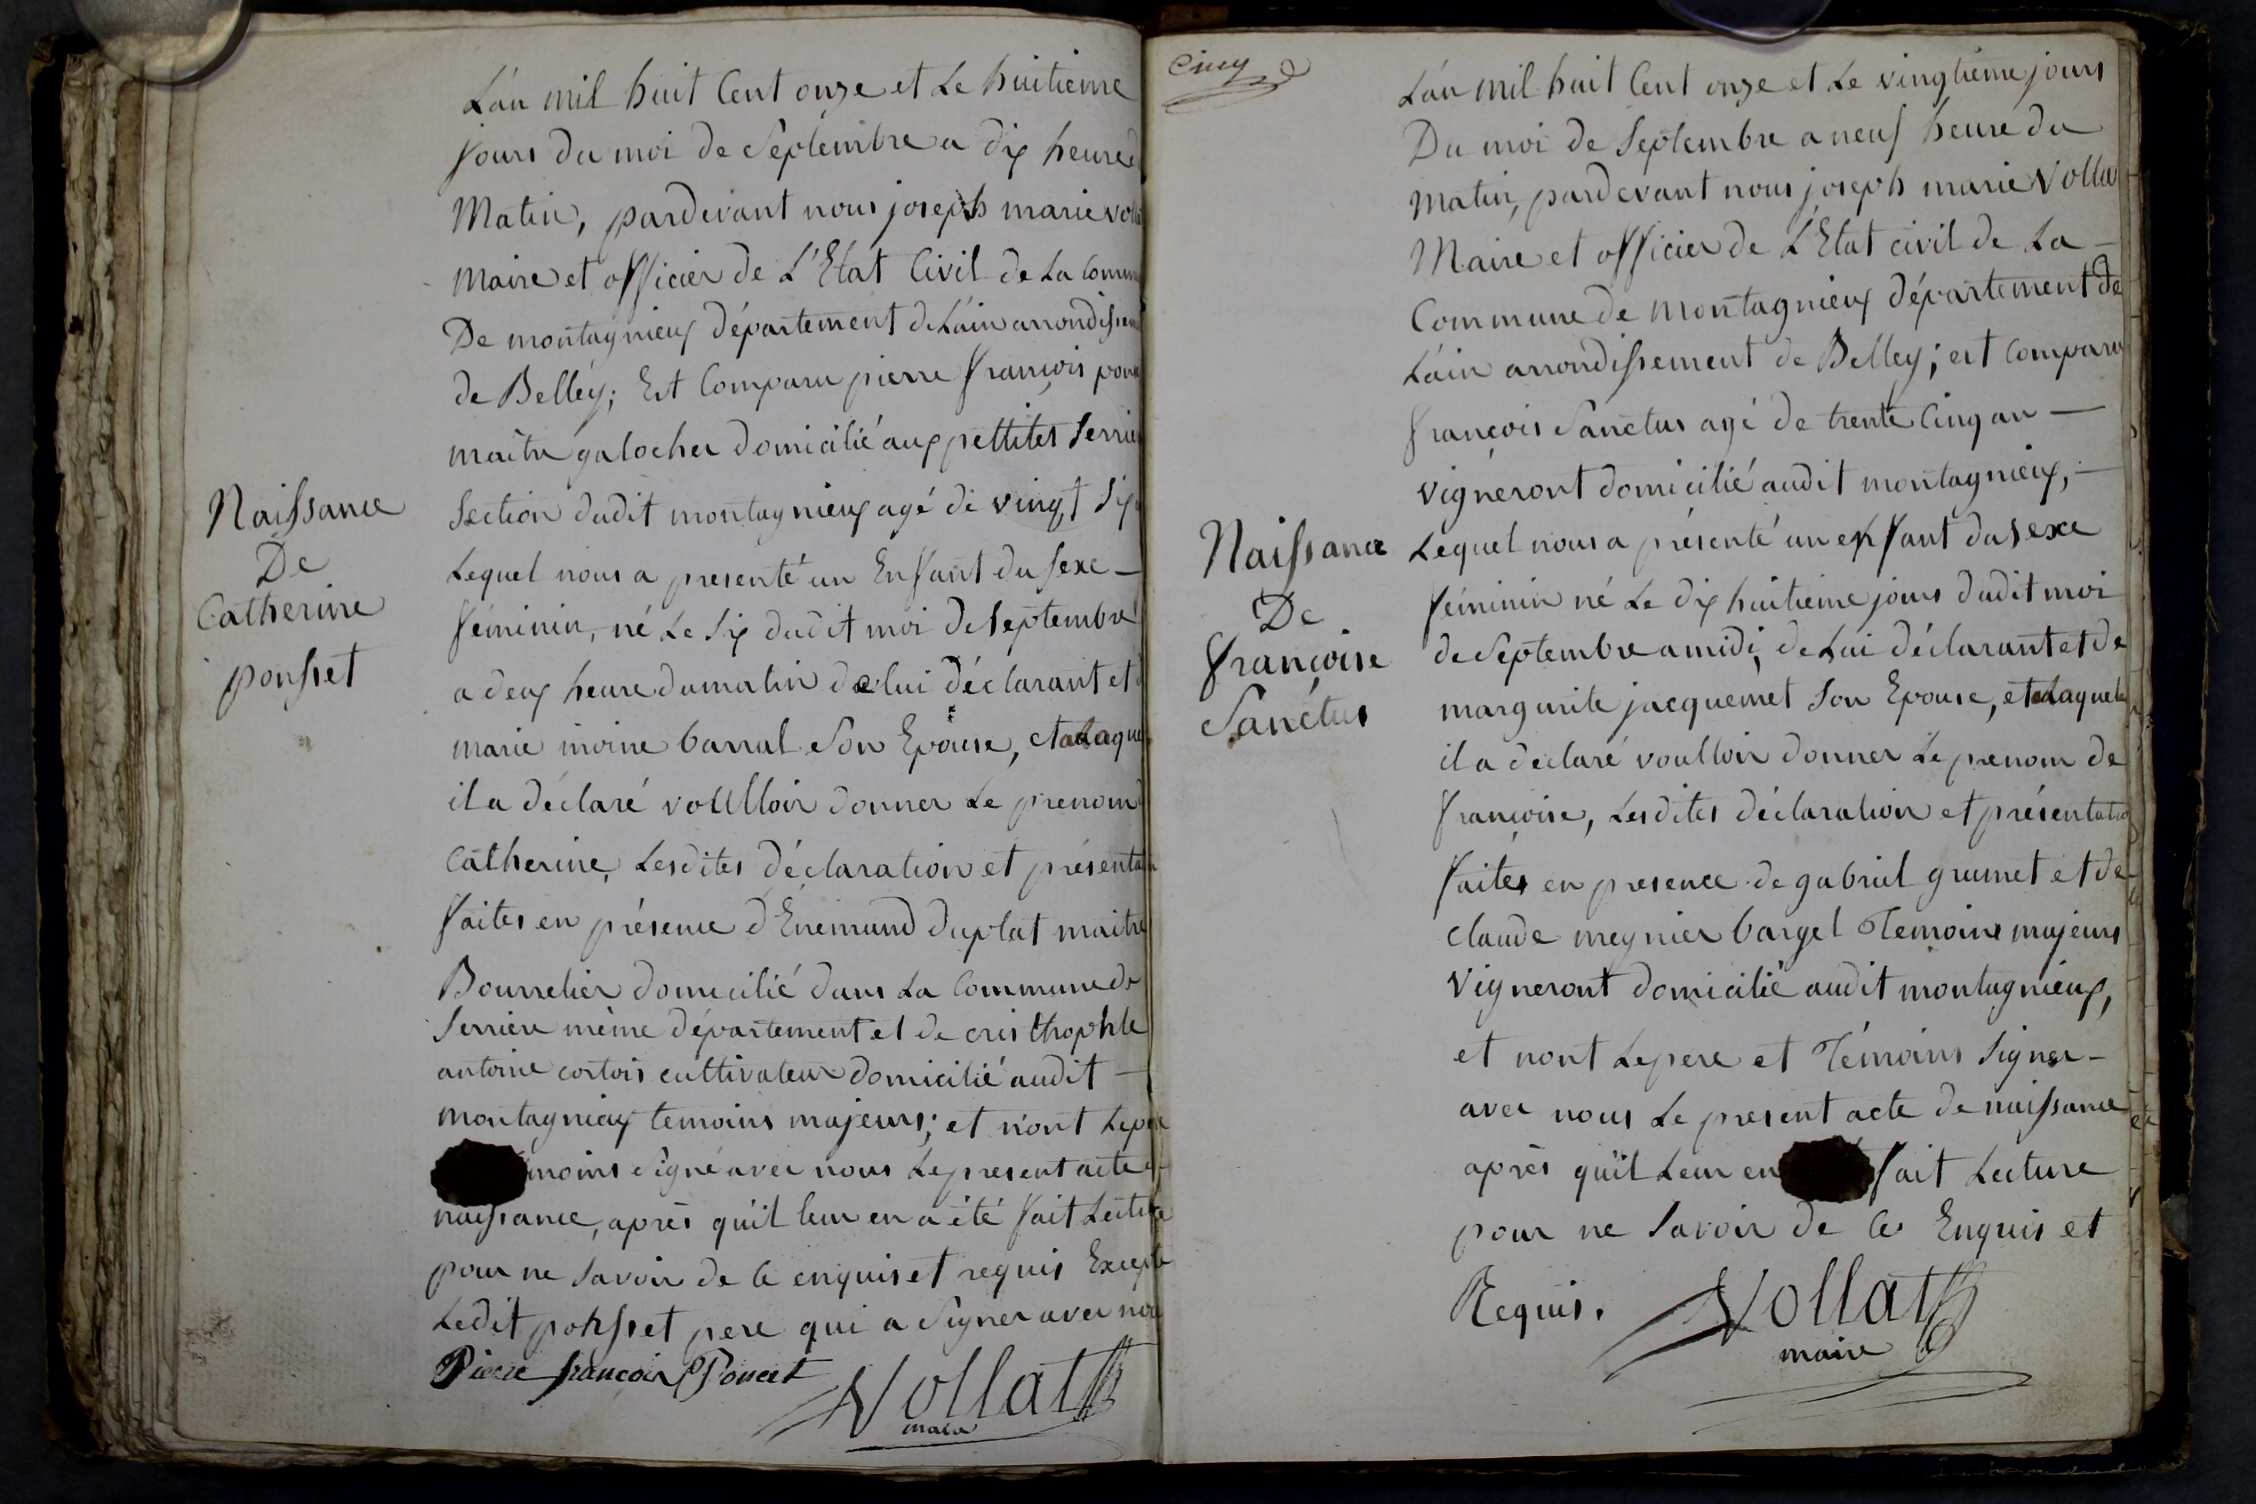 L'an mil huit Cent onze et Le huitieme
jours du moi de Septembre a dix heure
Matin, pardevant nous joseph marie
Maire et officier de L'Etat Civil de La
De montagnieux département de L'ain
de Belley; Est Comparu pierre françois
maitre galocher domicilié aux pettites
Section dudit montagnieux agé de vingt
Naissance
Lequel nous a presenté un Enfant du sexe
De
féminin, né Le Six dudit moi de Septembre
Catherine
a deux heure du matin de lui déclarant et
ponsset
marie moine barral Son Epouse, et a
il a déclaré voullloir donner Le prenom
Catherine, Lesdites déclaration et
faites en présence d'Enemund duplat maitre
Bourrelier domicilié dans La Commune de
Serriere même département et de cristhophle
antoine cortois cultivateur domicilié audit
montagnieux temoins majeurs; et n'ont Le
moins Signé avec nous Le present acte
naissance, après qu'il leur en a été fait Lecture
pour ne Savoir de Ce enquis et requis Excepte
Ledit ponsset pere qui a Signer avec
Pierre françois Poncet
Vollat
maire
Cinq
L'an mil huit Cent onze et Le vingtieme jours
Du moi de Septembre a neuf heure du
Matin, pardevant nous joseph marie
Maire et officier de L'Etat civil de La
Commune de montagnieux département de
L'ain arrondissement de Belley; est Comparu
françois Sanctus agé de trente Cinq an
vigneront domicilié audit montagnieux,
Naissance
Lequel nous a présenté un enfant du sexe
De
féminin né Le dix huitieme jours dudit moi
françoise
de Septembre a midi, de Lui déclarant et de
Sanctus
margurite jacquemet Son Epouse, et a
il a déclaré voulloir donner Le prenom de
françoise, Lesdites déclaration et
faites en presence de gabriel grumet et de
claude meynier bargel Temoins majeurs
Vigneront domicilié audit montagnieux,
et nont Le pere et Témoins Signer
avec nous Le present acte de naissance
après qu'il Leur en fait Lecture
pour ne Savoir de Ce Enquis et
Requis.
Vollat
maire